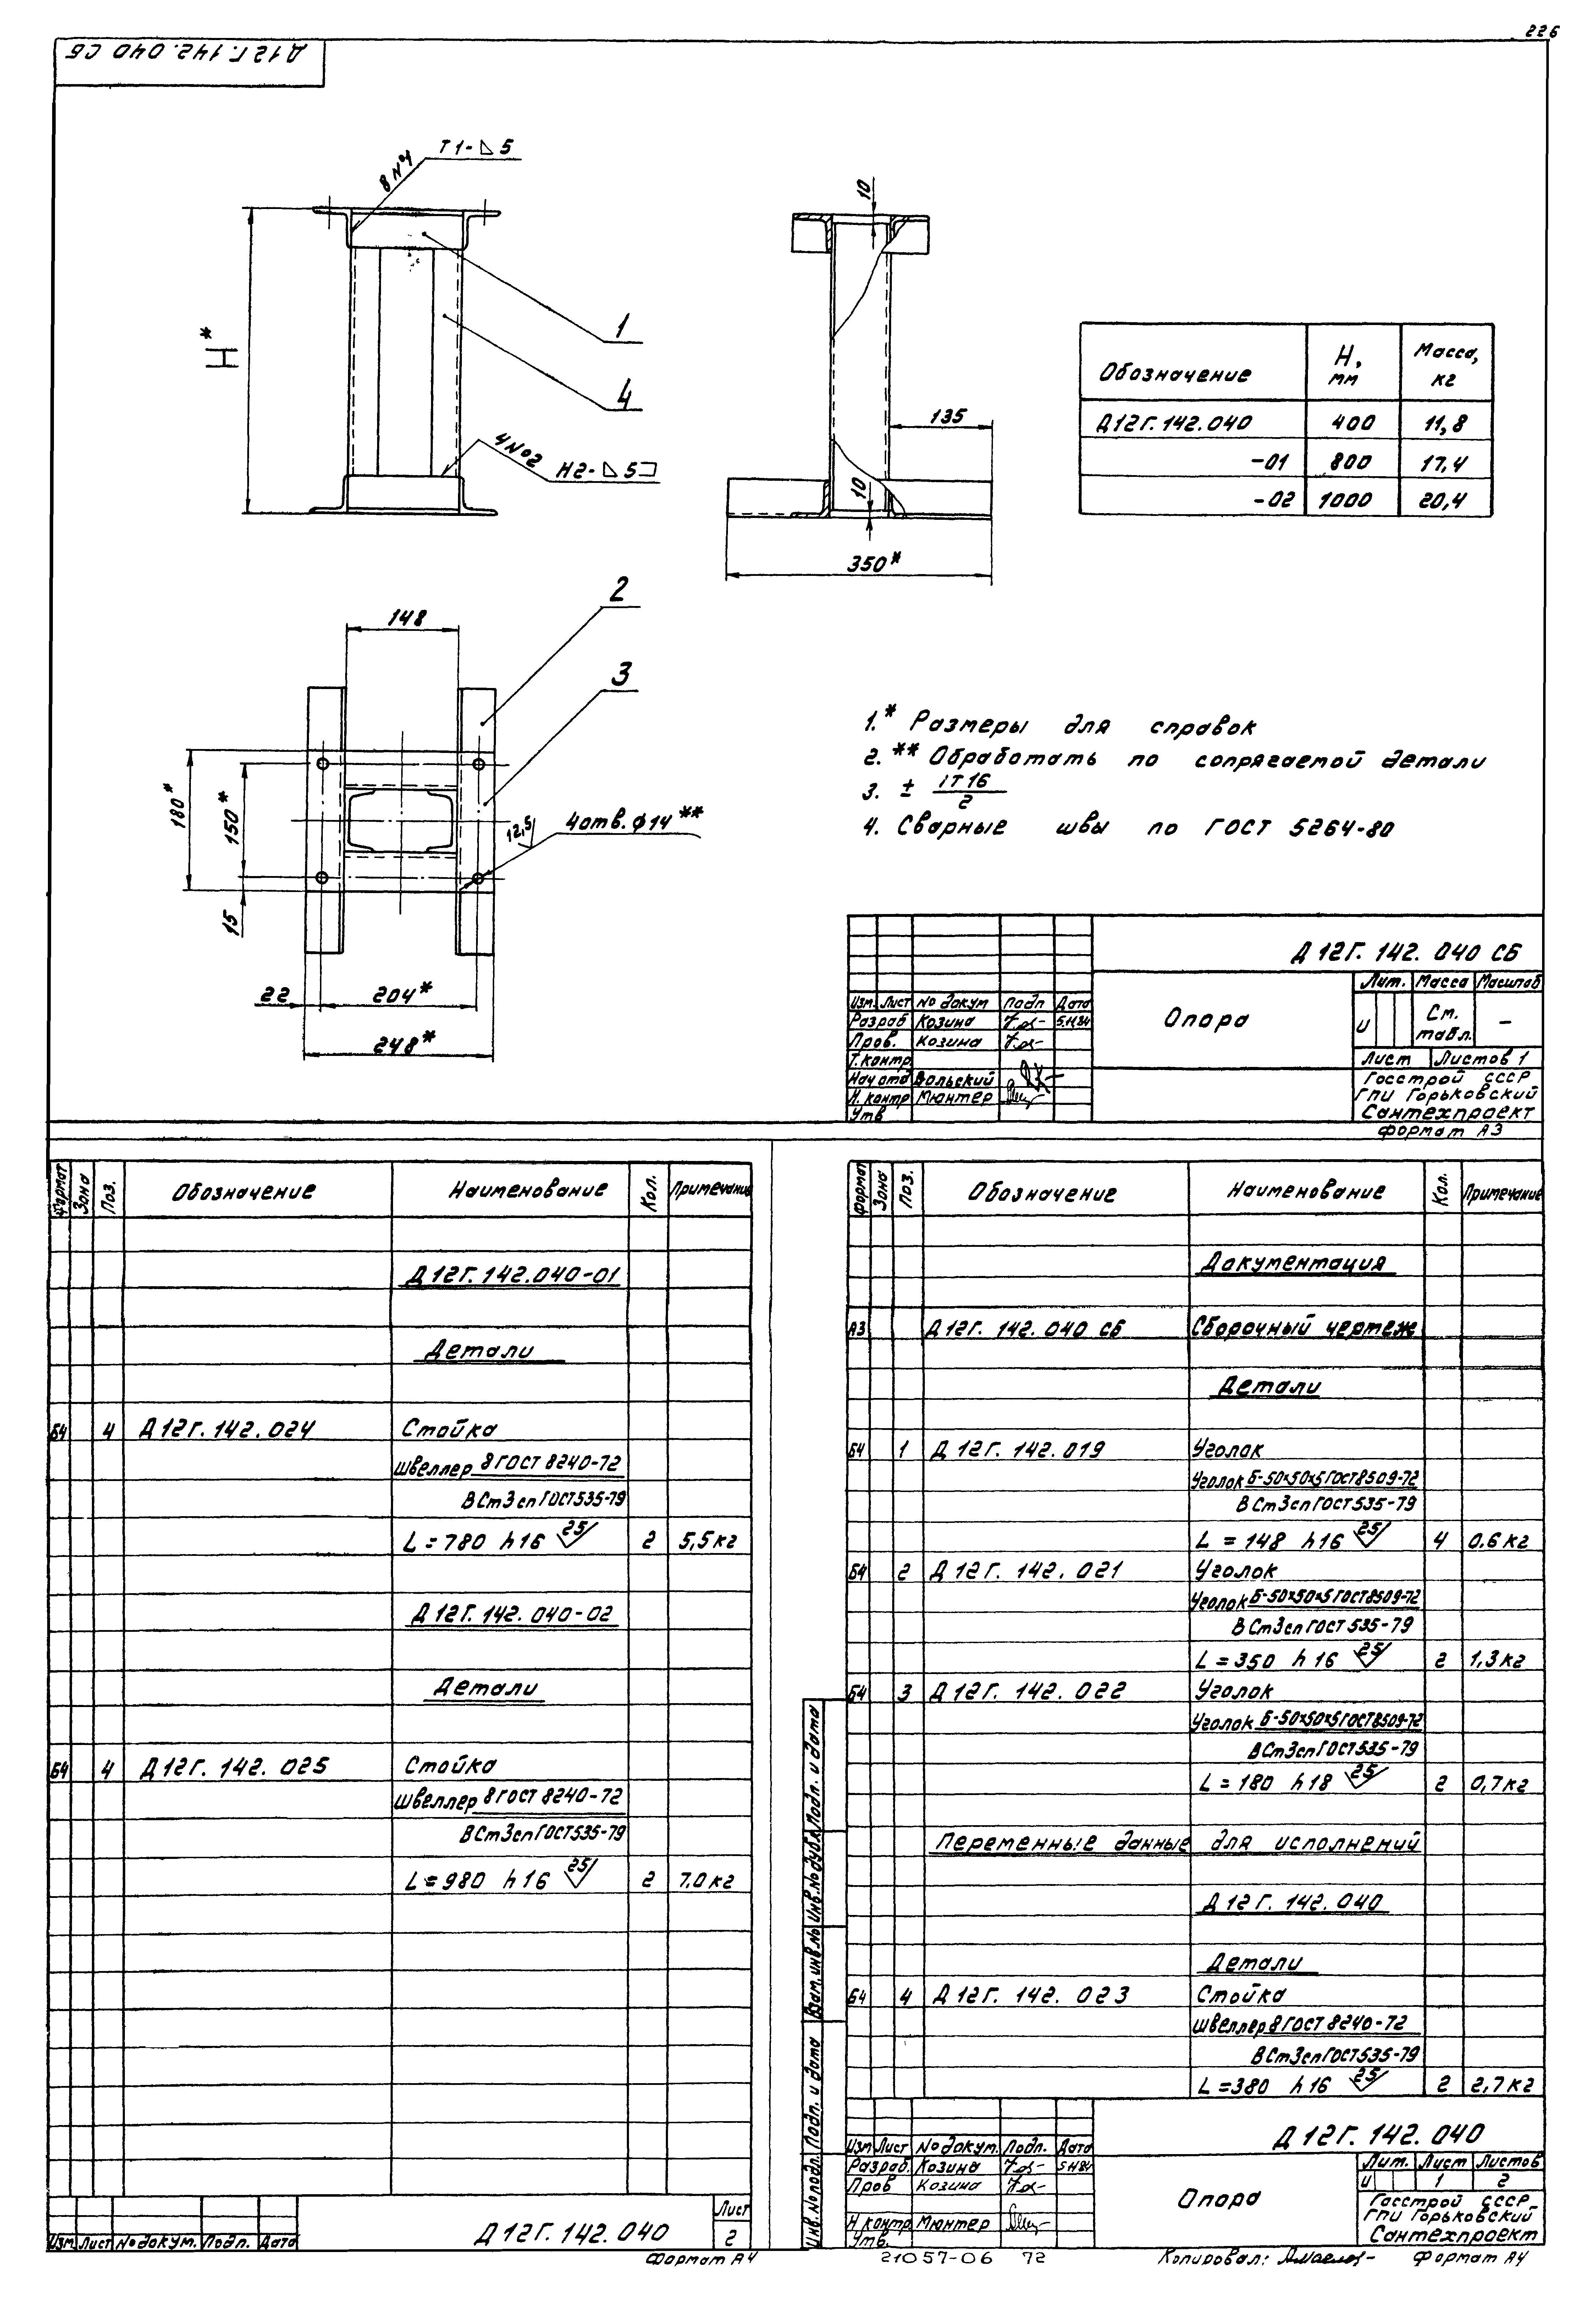 226
Д12Г.142.040 СБ
8 №4
Т1-◺5
10
Н*
1
4
4 №2
Н2-◺5⊐
135
10
350*
Обозначение Н, мм Масса, кг
Д12Г.142.040 400 11,8
-01 800 17,4
-02 1000 20,4
2
148
3
180*
150*
15
12,5
4отв.ф14**
22
204*
248*
1.* Размеры для справок
2.** Обработать по сопрягаемой детали
3. ± IT16/2
4. Сварные швы по ГОСТ 5264-80
Д12Г.142.040 СБ
Изм. Лист № докум Подп Дата
Разраб Козина 5.11.84
Пров. Козина
Т.контр
Нач отд Вольский
Н.контр Мюнтер
Утв
Опора
Лит. Масса Масштаб
И См. табл. –
Лист Листов 1
Госстрой СССР
ГПИ Горьковский
Сантехпроект
Формат А3
Формат Зона Поз. Обозначение Наименование Кол. Примечание
Д12Г.142.040-01
Детали
Б4 4 Д12Г.142.024 Стойка
Швеллер 8 ГОСТ 8240-72
ВСт3сп ГОСТ 535-79
L=780 h16 25 2 5,5кг
Д12Г.142.040-02
Детали
Б4 4 Д12Г.142.025 Стойка
Швеллер 8 ГОСТ 8240-72
ВСт3сп ГОСТ 535-79
L=980 h16 25 2 7.0кг
Изм Лист № докум. Подп. Дата
Д12Г.142.040
Лист
2
Формат А4
Формат Зона Поз. Обозначение Наименование Кол. Примечание
Документация
А3 Д12Г.142.040 СБ Сборочный чертеж
Детали
Б4 1 Д12Г.142.019 Уголок
Уголок Б-50x50x5 ГОСТ 8509-72
ВСт3сп ГОСТ 535-79
L=148 h16 25 4 0.6кг
Б4 2 Д12Г.142.021 Уголок
Уголок Б-50x50x5 ГОСТ 8509-72
ВСт3сп ГОСТ 535-79
L=350 h16 25 2 1,3кг
Б4 3 Д12Г.142.022 Уголок
Уголок Б-50x50x5 ГОСТ 8509-72
ВСт3сп ГОСТ 535-79
L=180 h18 25 2 0,7кг
Переменные данные для исполнений
Д12Г.142.040
Детали
Б4 4 Д12Г.142.023 Стойка
Швеллер 8 ГОСТ 8240-72
ВСт3сп ГОСТ 535-79
L=380 h16 25 2 2,7кг
Инв.№подл. Подп. и дата Взам.инв.№ Инв.№дубл. Подп. и дата
Д12Г.142.040
Изм Лист № докум. Подп. Дата
Разраб. Козина 5.11.84
Пров Козина
Н контр Мюнтер
Утв.
Опора
Лит. Лист Листов
И 1 2
Госстрой СССР
ГПИ Горьковский
Сантехпроект
21057-06 72
Копировал:
Формат А4